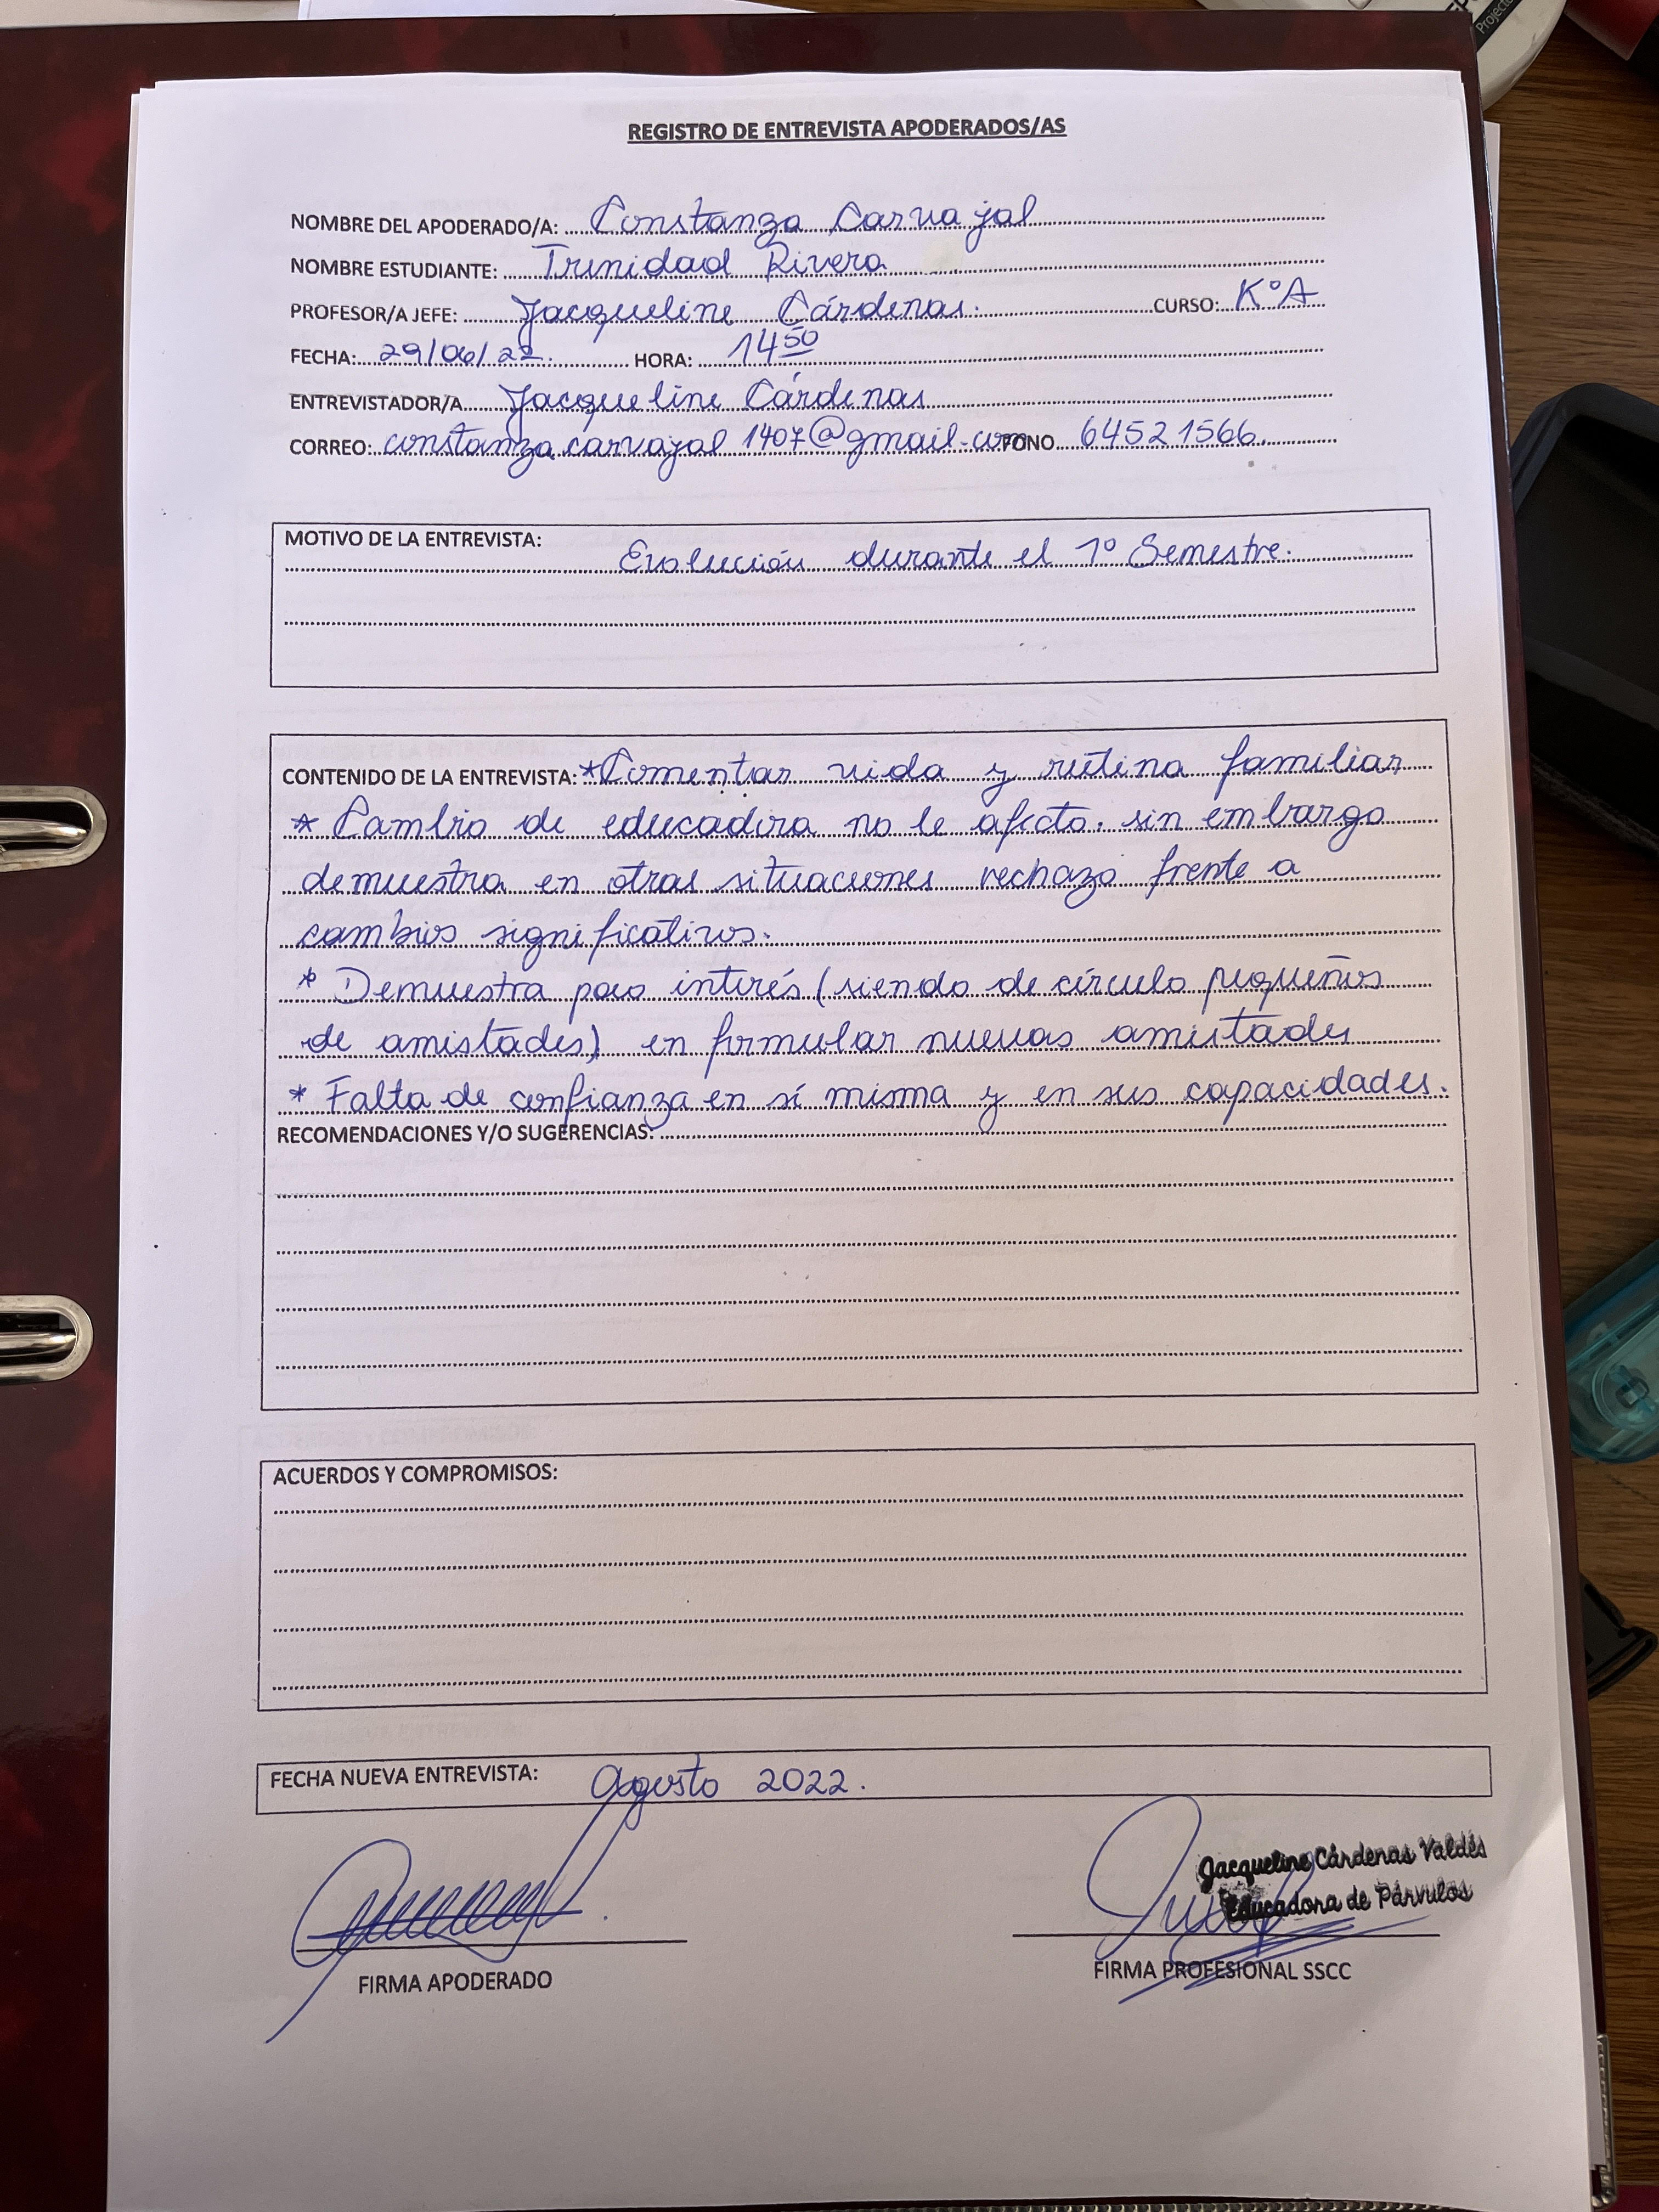 REGISTRO DE ENTREVISTA APODERADOS/AS
NOMBRE DEL APODERADO/A: Constanza Carvajal
NOMBRE ESTUDIANTE: Trinidad Rivera
PROFESOR/A JEFE: Jacqueline Cárdenas. CURSO: K°A
FECHA: 29/06/22. HORA: 14 50
ENTREVISTADOR/A Jacqueline Cárdenas
CORREO: constanza.carvajal1407@gmail.com FONO 64521566.
MOTIVO DE LA ENTREVISTA: Evolución durante el 1° Semestre.
CONTENIDO DE LA ENTREVISTA: *Comentar vida y rutina familiar
* Cambio de educadora no le afecto. sin embargo
demuestra en otras situaciones rechazo frente a
cambios significativos.
* Demuestra poco interés (siendo de círculo pequeños
de amistades) en formular nuevas amistades
* Falta de confianza en sí misma y en sus capacidades.
RECOMENDACIONES Y/O SUGERENCIAS:
ACUERDOS Y COMPROMISOS:
FECHA NUEVA ENTREVISTA: Agosto 2022.
Jacqueline Cárdenas Valdés
Educadora de Párvulos
FIRMA APODERADO FIRMA PROFESIONAL SSCC